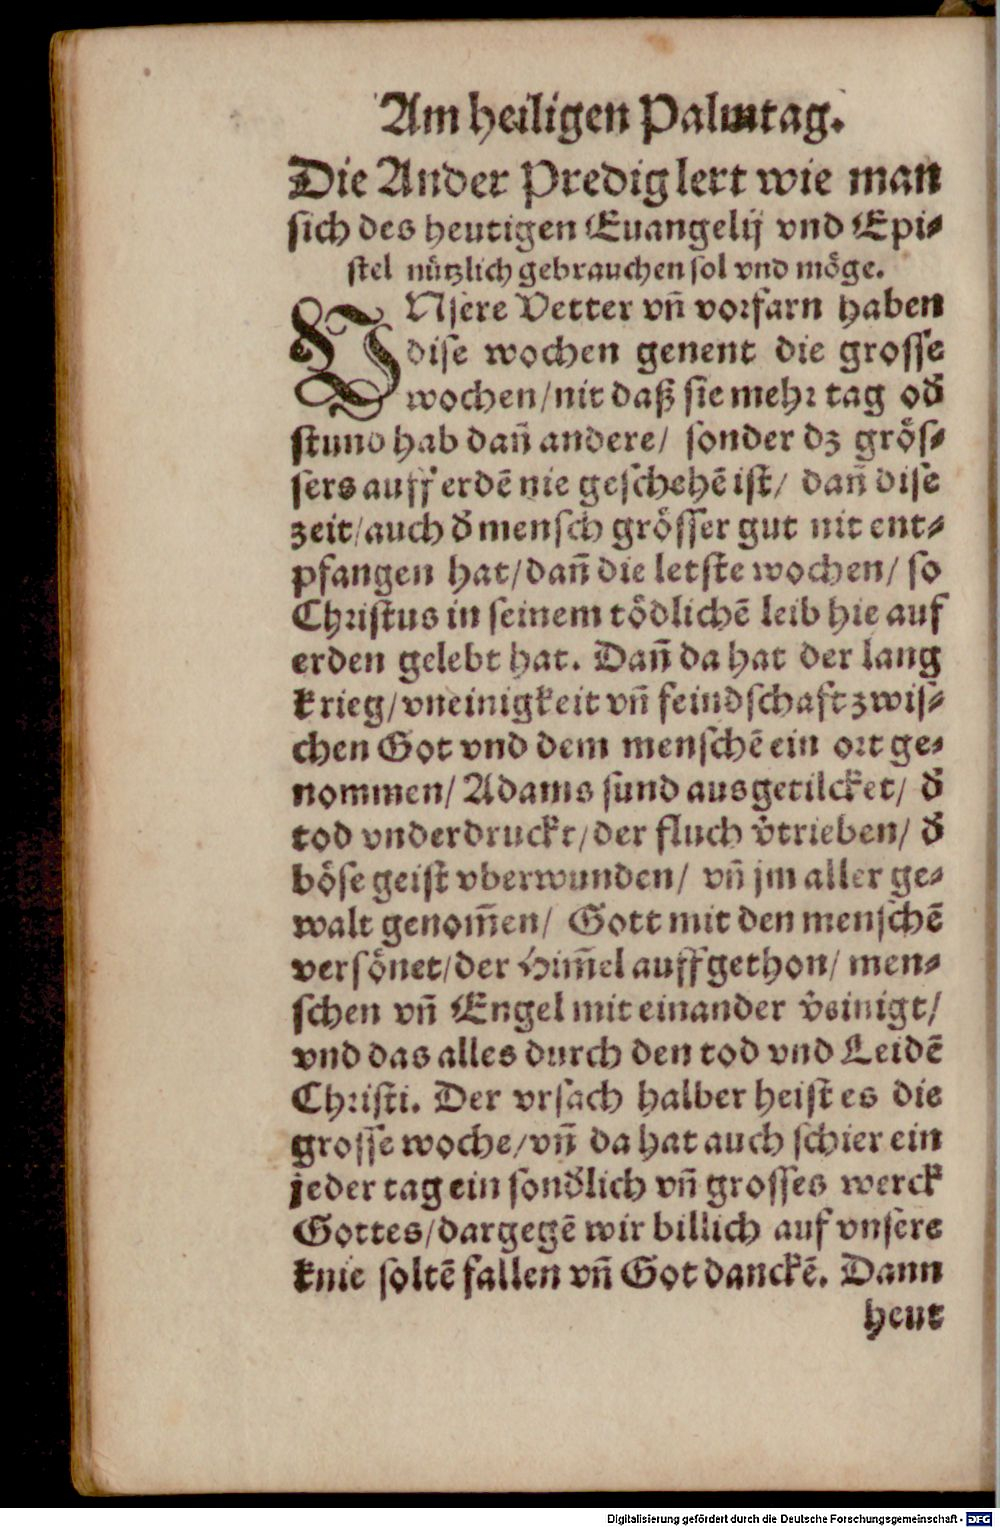 Am heiligen Palmtag.
Die Ander Predig lert wie man
sich des heutigen Euangelij vnd Epi-
stel nützlich gebrauchen sol vnd möge.
VNsere Vetter vñ vorfarn haben
dise wochen genent die grosse
wochen/nit daß sie mehr tag oď
stund hab dañ andere/ sonder dz grös-
sers auff erdẽ nie geschehẽ ist/ dañ dise
zeit/auch ď mensch grösser gut nit ent-
pfangen hat/dañ die letste wochen/ so
Christus in seinem tödlichẽ leib hie auf
erden gelebt hat. Dañ da hat der lang
krieg/vneinigkeit vñ feindschaft zwis-
chen Got vnd dem menschẽ ein ort ge-
nommen/ Adams sund ausgetilcket/ ď
tod vnderdruckt/der fluch v̈trieben/ ď
böse geist vberwunden/ vñ jm aller ge-
walt genom̃en/ Gott mit den menschẽ
versönet/der Him̃el auffgethon/ men-
schen vñ Engel mit einander v̈einigt/
vnd das alles durch den tod vnd Leidẽ
Christi. Der vrsach halber heist es die
grosse woche/vñ da hat auch schier ein
jeder tag ein sonďlich vñ grosses werck
Gottes/dargegẽ wir billich auf vnsere
knie soltẽ fallen vñ Got danckẽ. Dann
heut
Digitalisierung gefördert durch die Deutsche Forschungsgemeinschaft - DFG